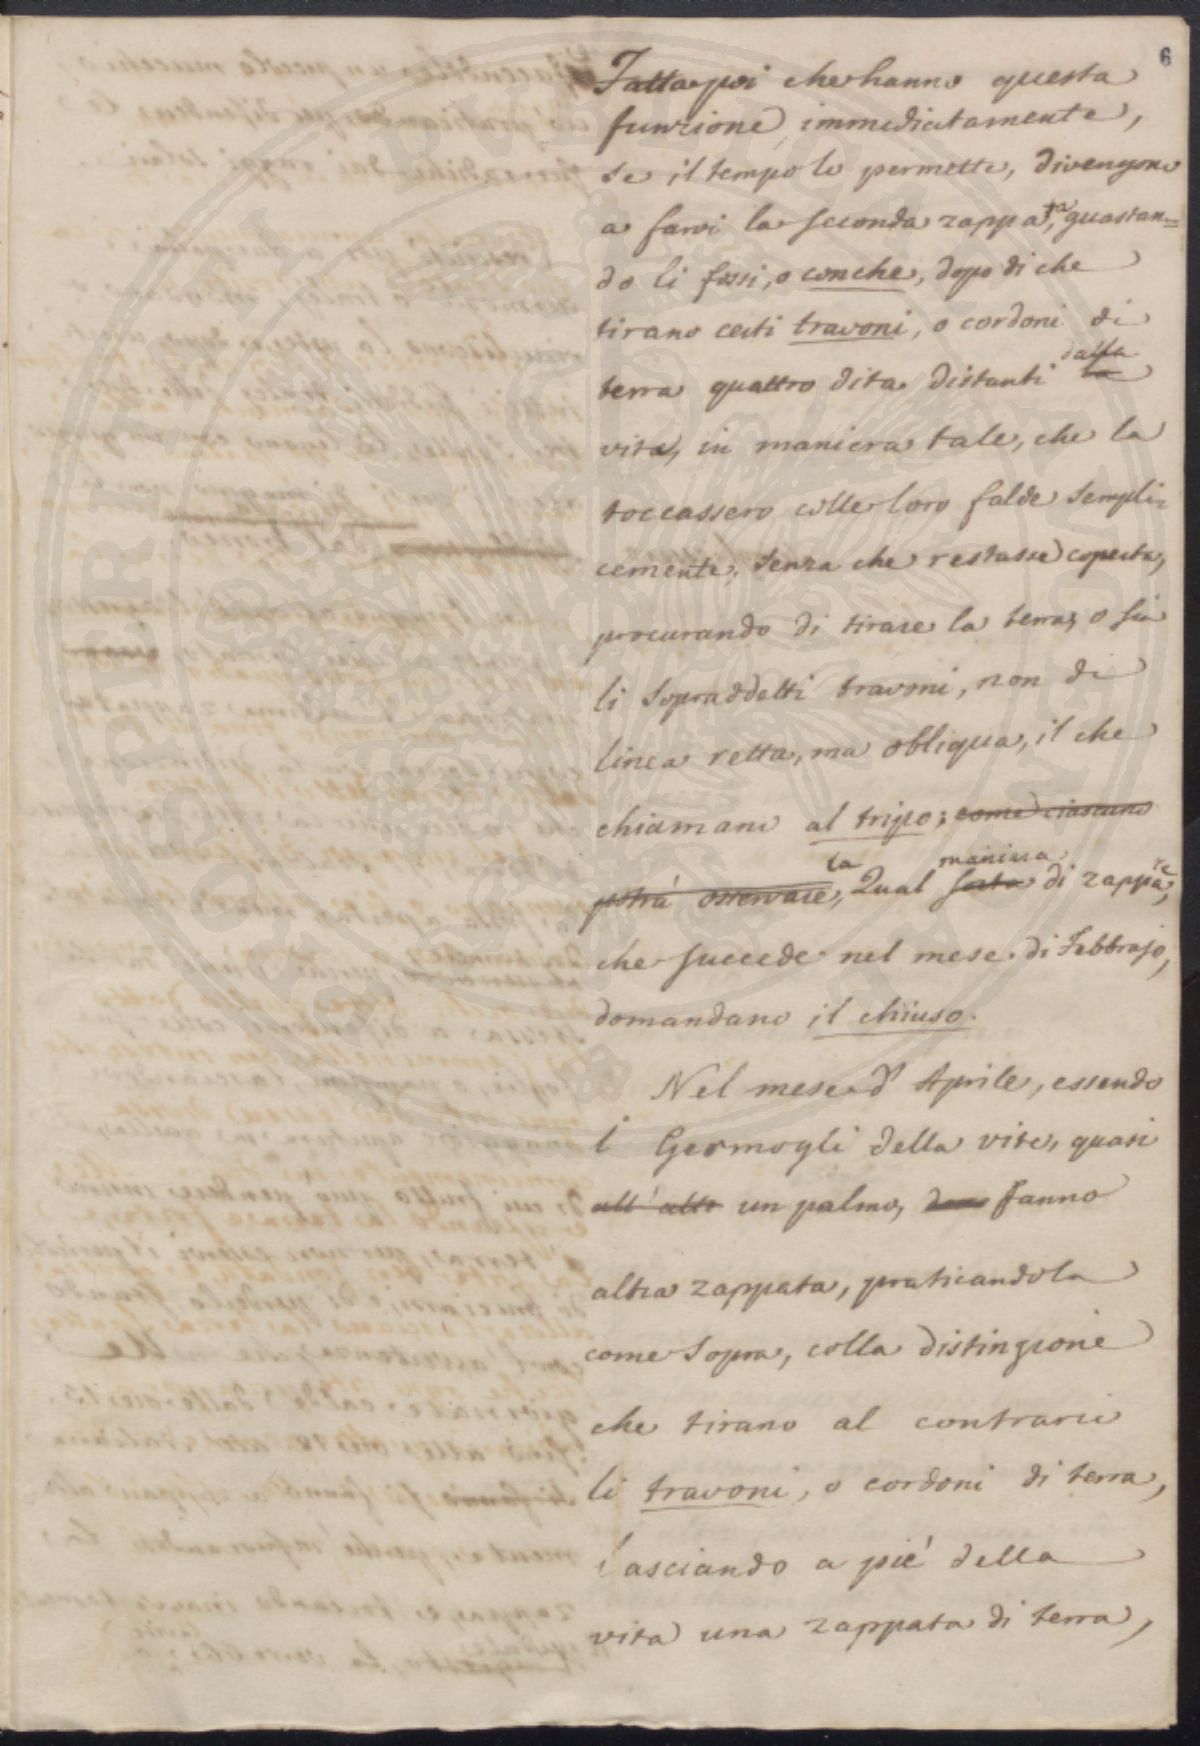 6
Fatta poi che hanno questa
funzione, immediatamente,
se il tempo lo permette, divengono
a farvi la seconda zappa,ta guastan=
do li fossi, o conche, dopo di che
tirano certi travoni, o cordoni di
terra quattro dita distanti la dalla
vita, in maniera tale, che la
toccassero colle loro falde sempli=
cemente, senza che restasse coperta,
procurando di tirare la terra, o sia
li sopraddetti travoni, non di
linea retta, ma obliqua, il che
chiamano al tripo; come ciascuno
potrà osservare, la Qual sorta maniera di zappa,re
che succede nel mese di Febbrajo,
domandano il chiuso.
Nel mese d' Aprile, essendo
i Germogli della vite, quasi
all' alto un palmo, fanno
altra zappata, praticandola
come sopra, colla distinzione
che tirano al contrario
li travoni, o cordoni di terra,
lasciando a piè della
vita una zappata di terra,